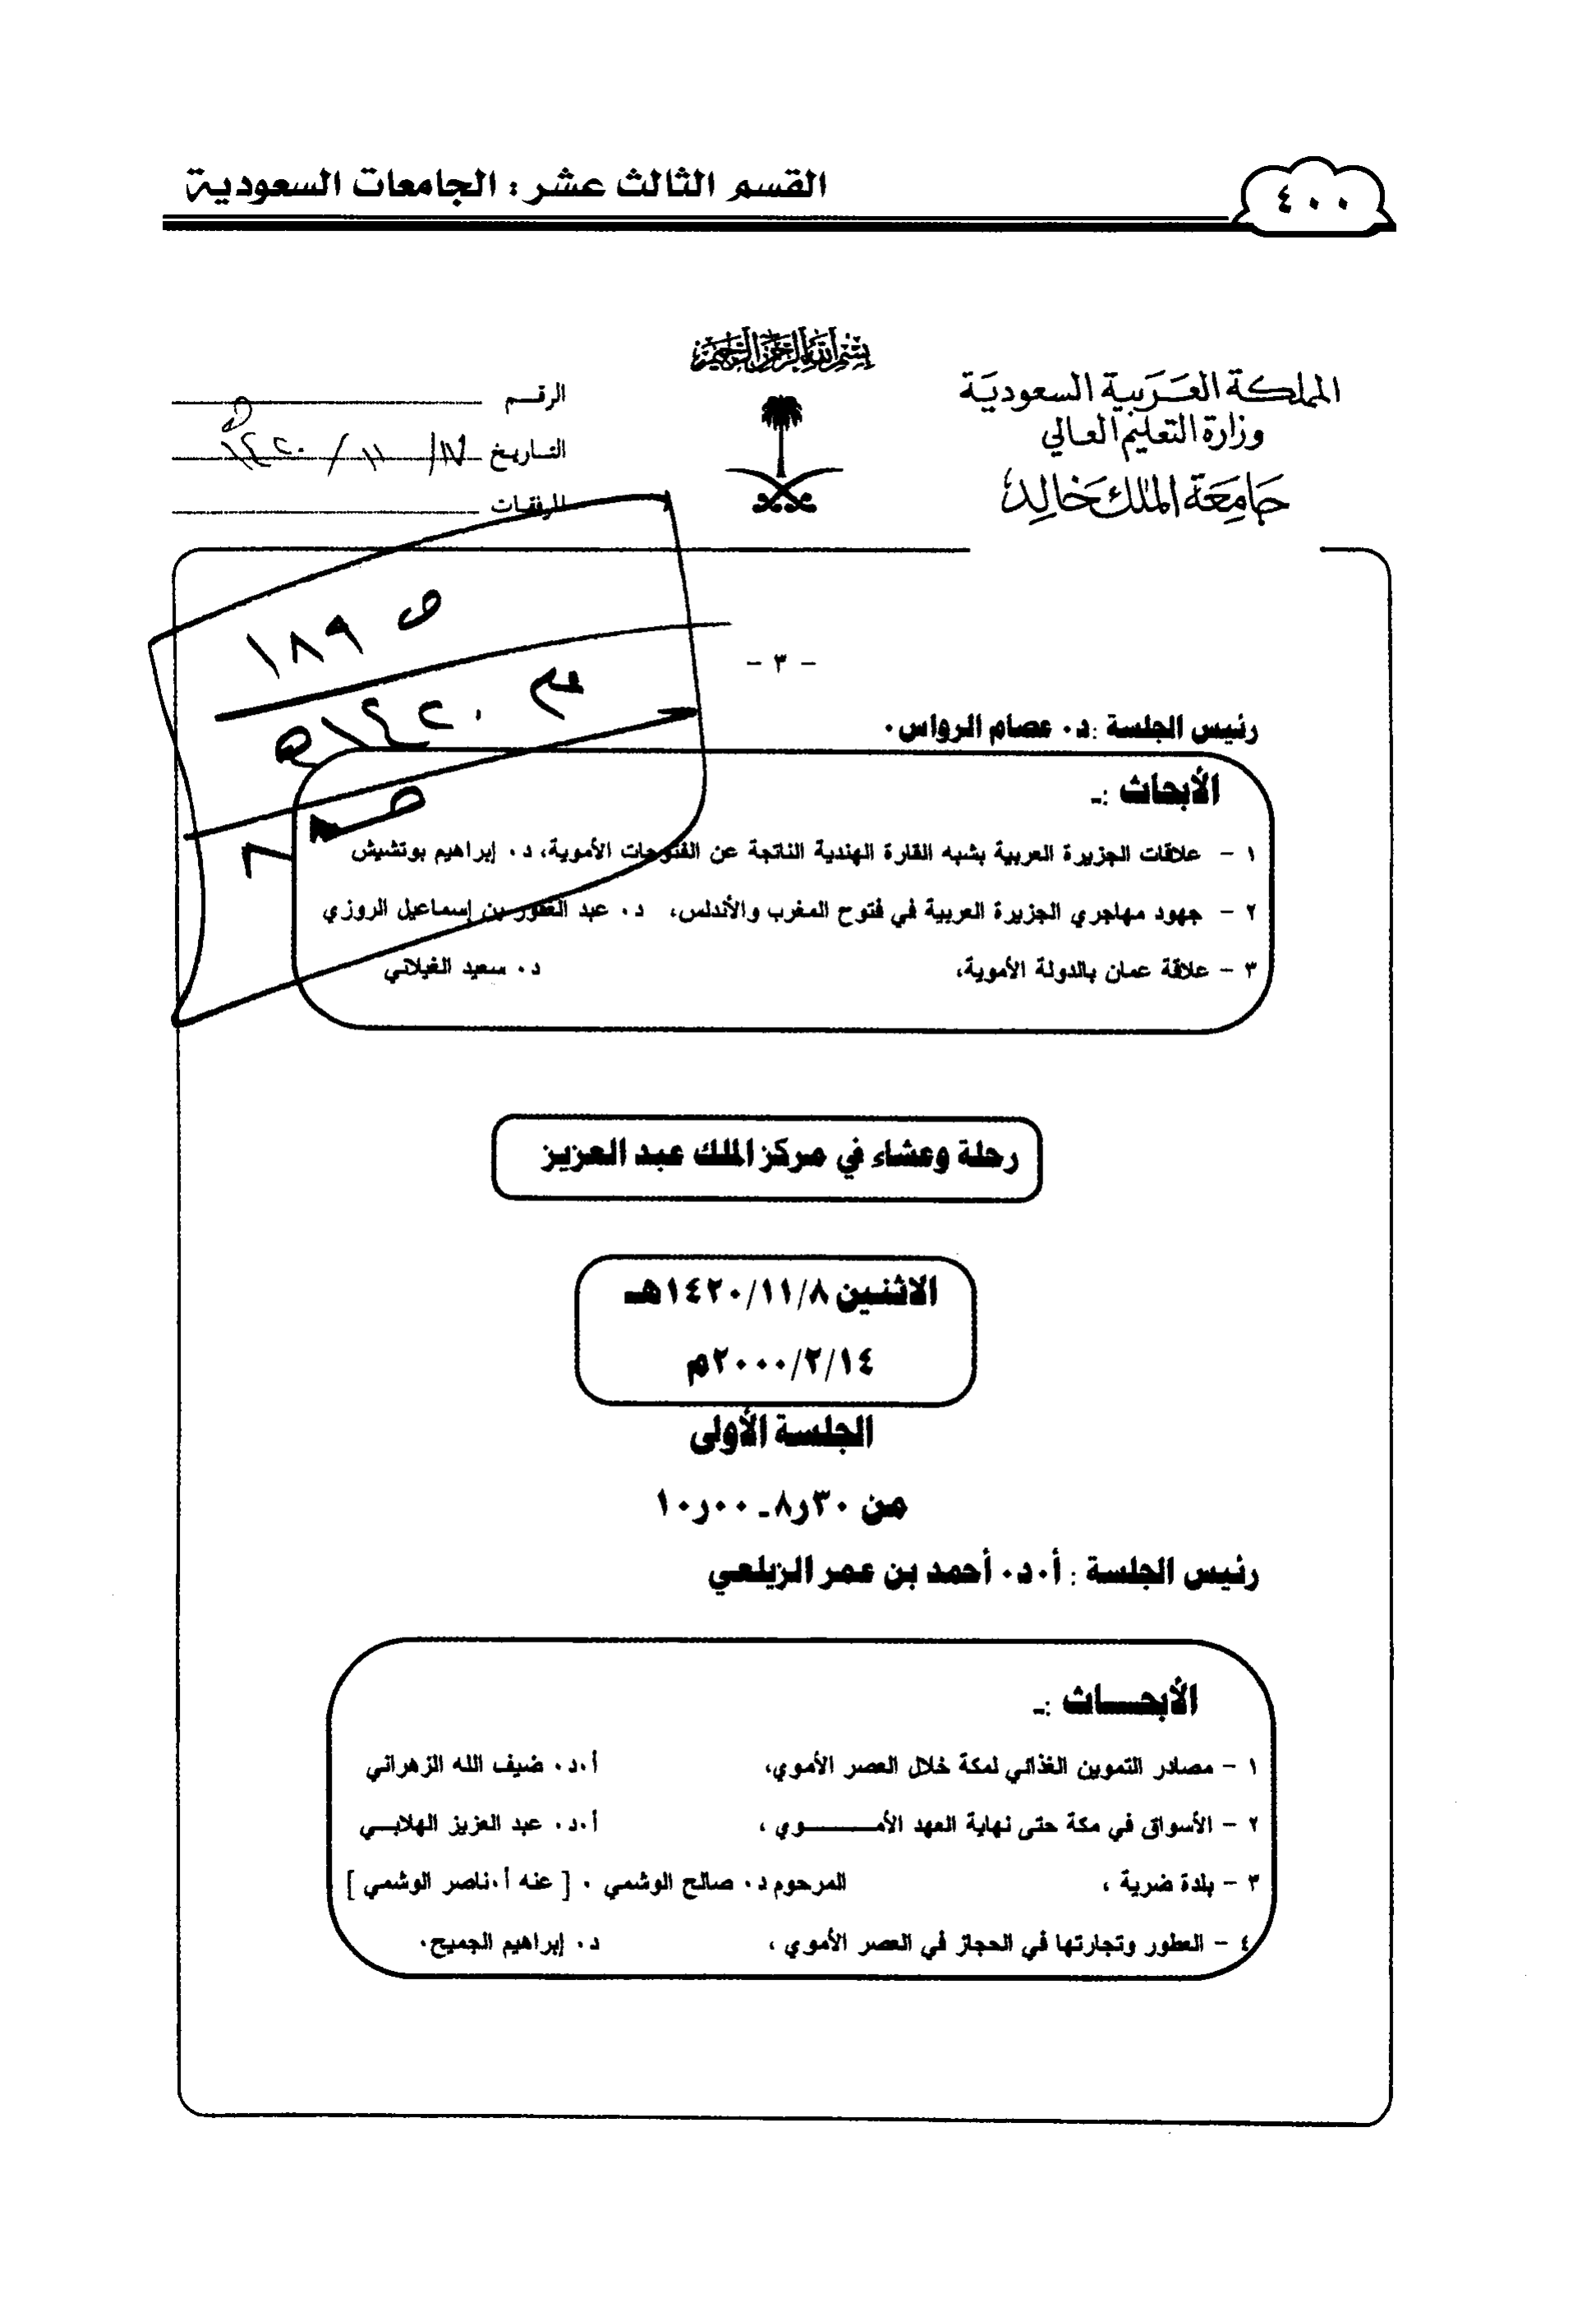 ٤٠٠
القسم الثالث عشر : الجامعات السعودية
بسم الله الرحمن الرحيم
المملكة العربية السعودية
وزارة التعليم العالي
جامعة الملك خالد
الرقم
التاريخ ١٧/ ١١ / ١٤٢٠هـ
المرفقات
١٨٩
١٤٢٠هـ
- ٣ -
رئيس الجلسة :د٠ عصام الرواس٠
الأبحاث :ـ
١ - علاقات الجزيرة العربية بشبه القارة الهندية الناتجة عن الفتوحات الأموية، د٠ إبراهيم بوتشيش
٢ - جهود مهاجري الجزيرة العربية في فتوح المغرب والأندلس، د٠ عبد الغفور بن إسماعيل الروزي
٣ - علاقة عمان بالدولة الأموية، د٠ سعيد الغيلاني
رحلة وعشاء في مركز الملك عبد العزيز
الاثنين ١٤٢٠/١١/٨هـ
٢٠٠٠/٢/١٤م
الجلسة الأولى
من ٣٠ر٨ـ ٠٠ر١٠
رئيس الجلسة : أ٠د٠ أحمد بن عمر الزيلعي
الأبحـــاث :ـ
١ - مصادر التموين الغذائي لمكة خلال العصر الأموي، أ٠د٠ ضيف الله الزهراني
٢ - الأسواق في مكة حتى نهاية العهد الأمـــــوي ، أ٠د٠ عبد العزيز الهلابـــي
٣ - بلدة ضرية ، المرحوم د٠ صالح الوشمي ٠ [ عنه أ٠ناصر الوشمي ]
٤ - العطور وتجارتها في الحجاز في العصر الأموي ، د٠ إبراهيم الجميح٠